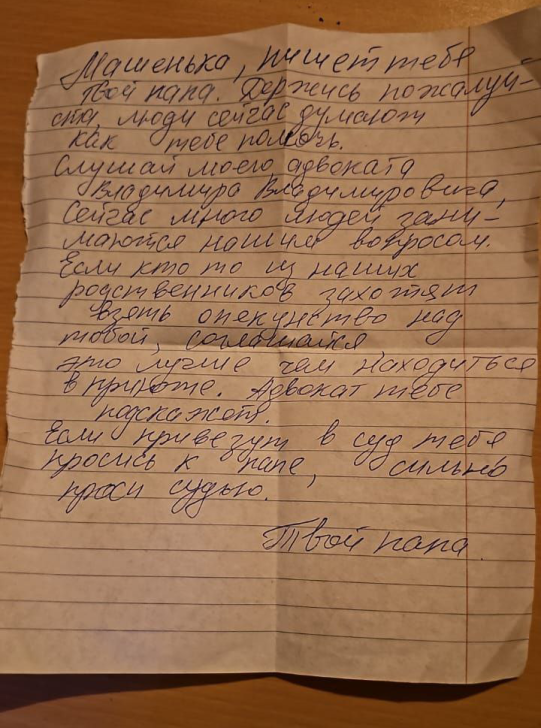 Машенька, пишет тебе
твой папа. Держись пожалуй-
ста, люди сейчас думают
как тебе помочь.
Слушай моего адвоката
Владимира Владимировича,
Сейчас много людей зани-
маются нашим вопросом.
Если кто то из наших
родственников захотят
взять опекунство над
тобой, соглашайся
это лучше чем находиться
в приюте. Адвокат тебе
подскажет.
Если привезут в суд тебя
просись к папе, сильно
проси судью.
Твой папа